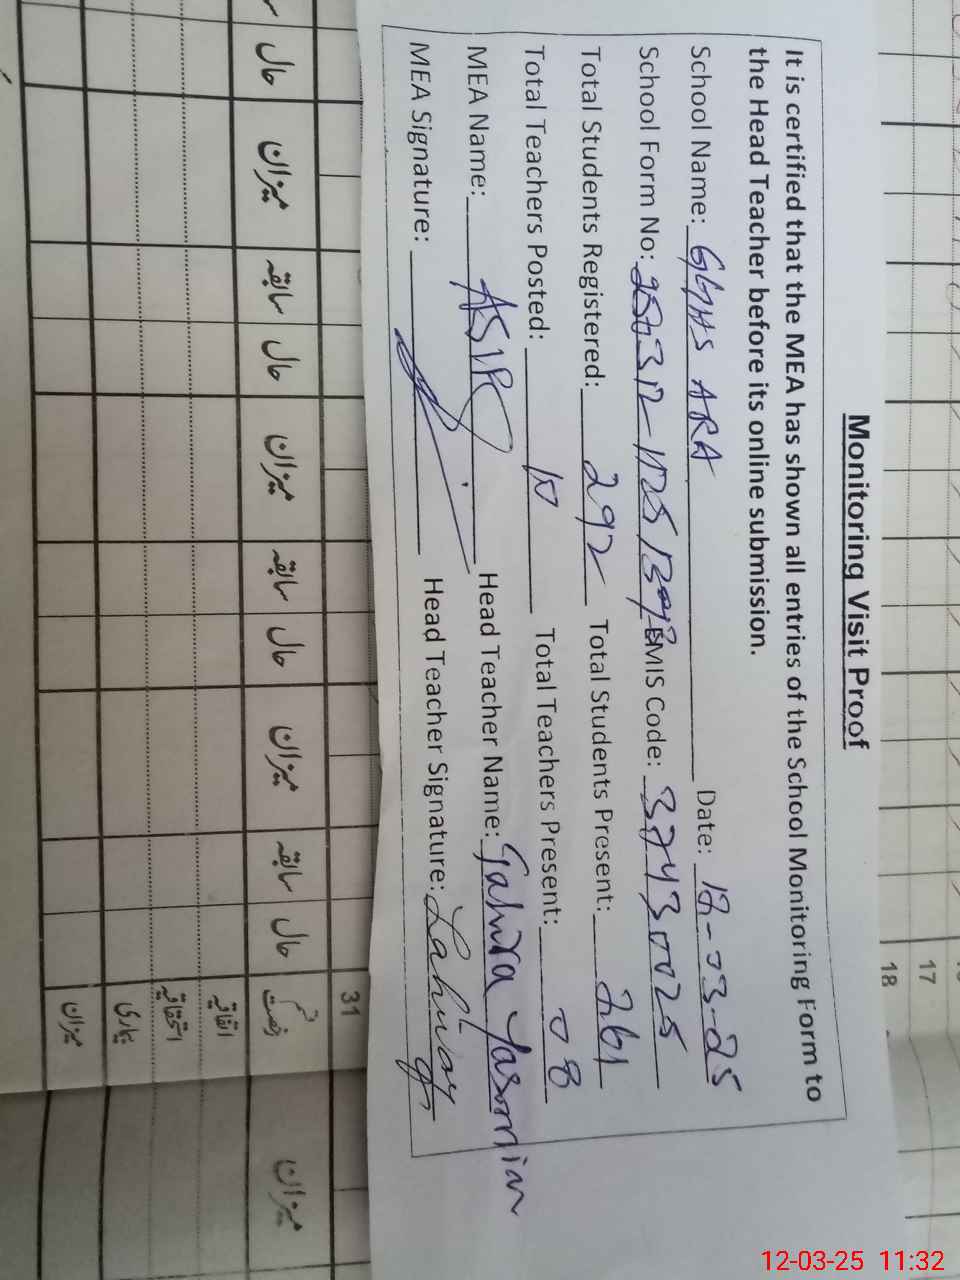 Monitoring Visit Proof
It is certified that the MEA has shown all entries of the School Monitoring Form to
the Head Teacher before its online submission.
School Name: GGHS ARA Date: 12-03-25
School Form No: EMIS Code: 37430025
Total Students Registered: 292 Total Students Present: 261
Total Teachers Posted: 10 Total Teachers Present: 08
MEA Name: ASIF Head Teacher Name: Yasmin
MEA Signature: Head Teacher Signature:
17
18
31
حال میزان سابقہ حال میزان سابقہ حال میزان سابقہ حال قسم رخصت میزان
اتفاقیہ
استحقاقیہ
بیماری
میزان
12-03-25 11:32